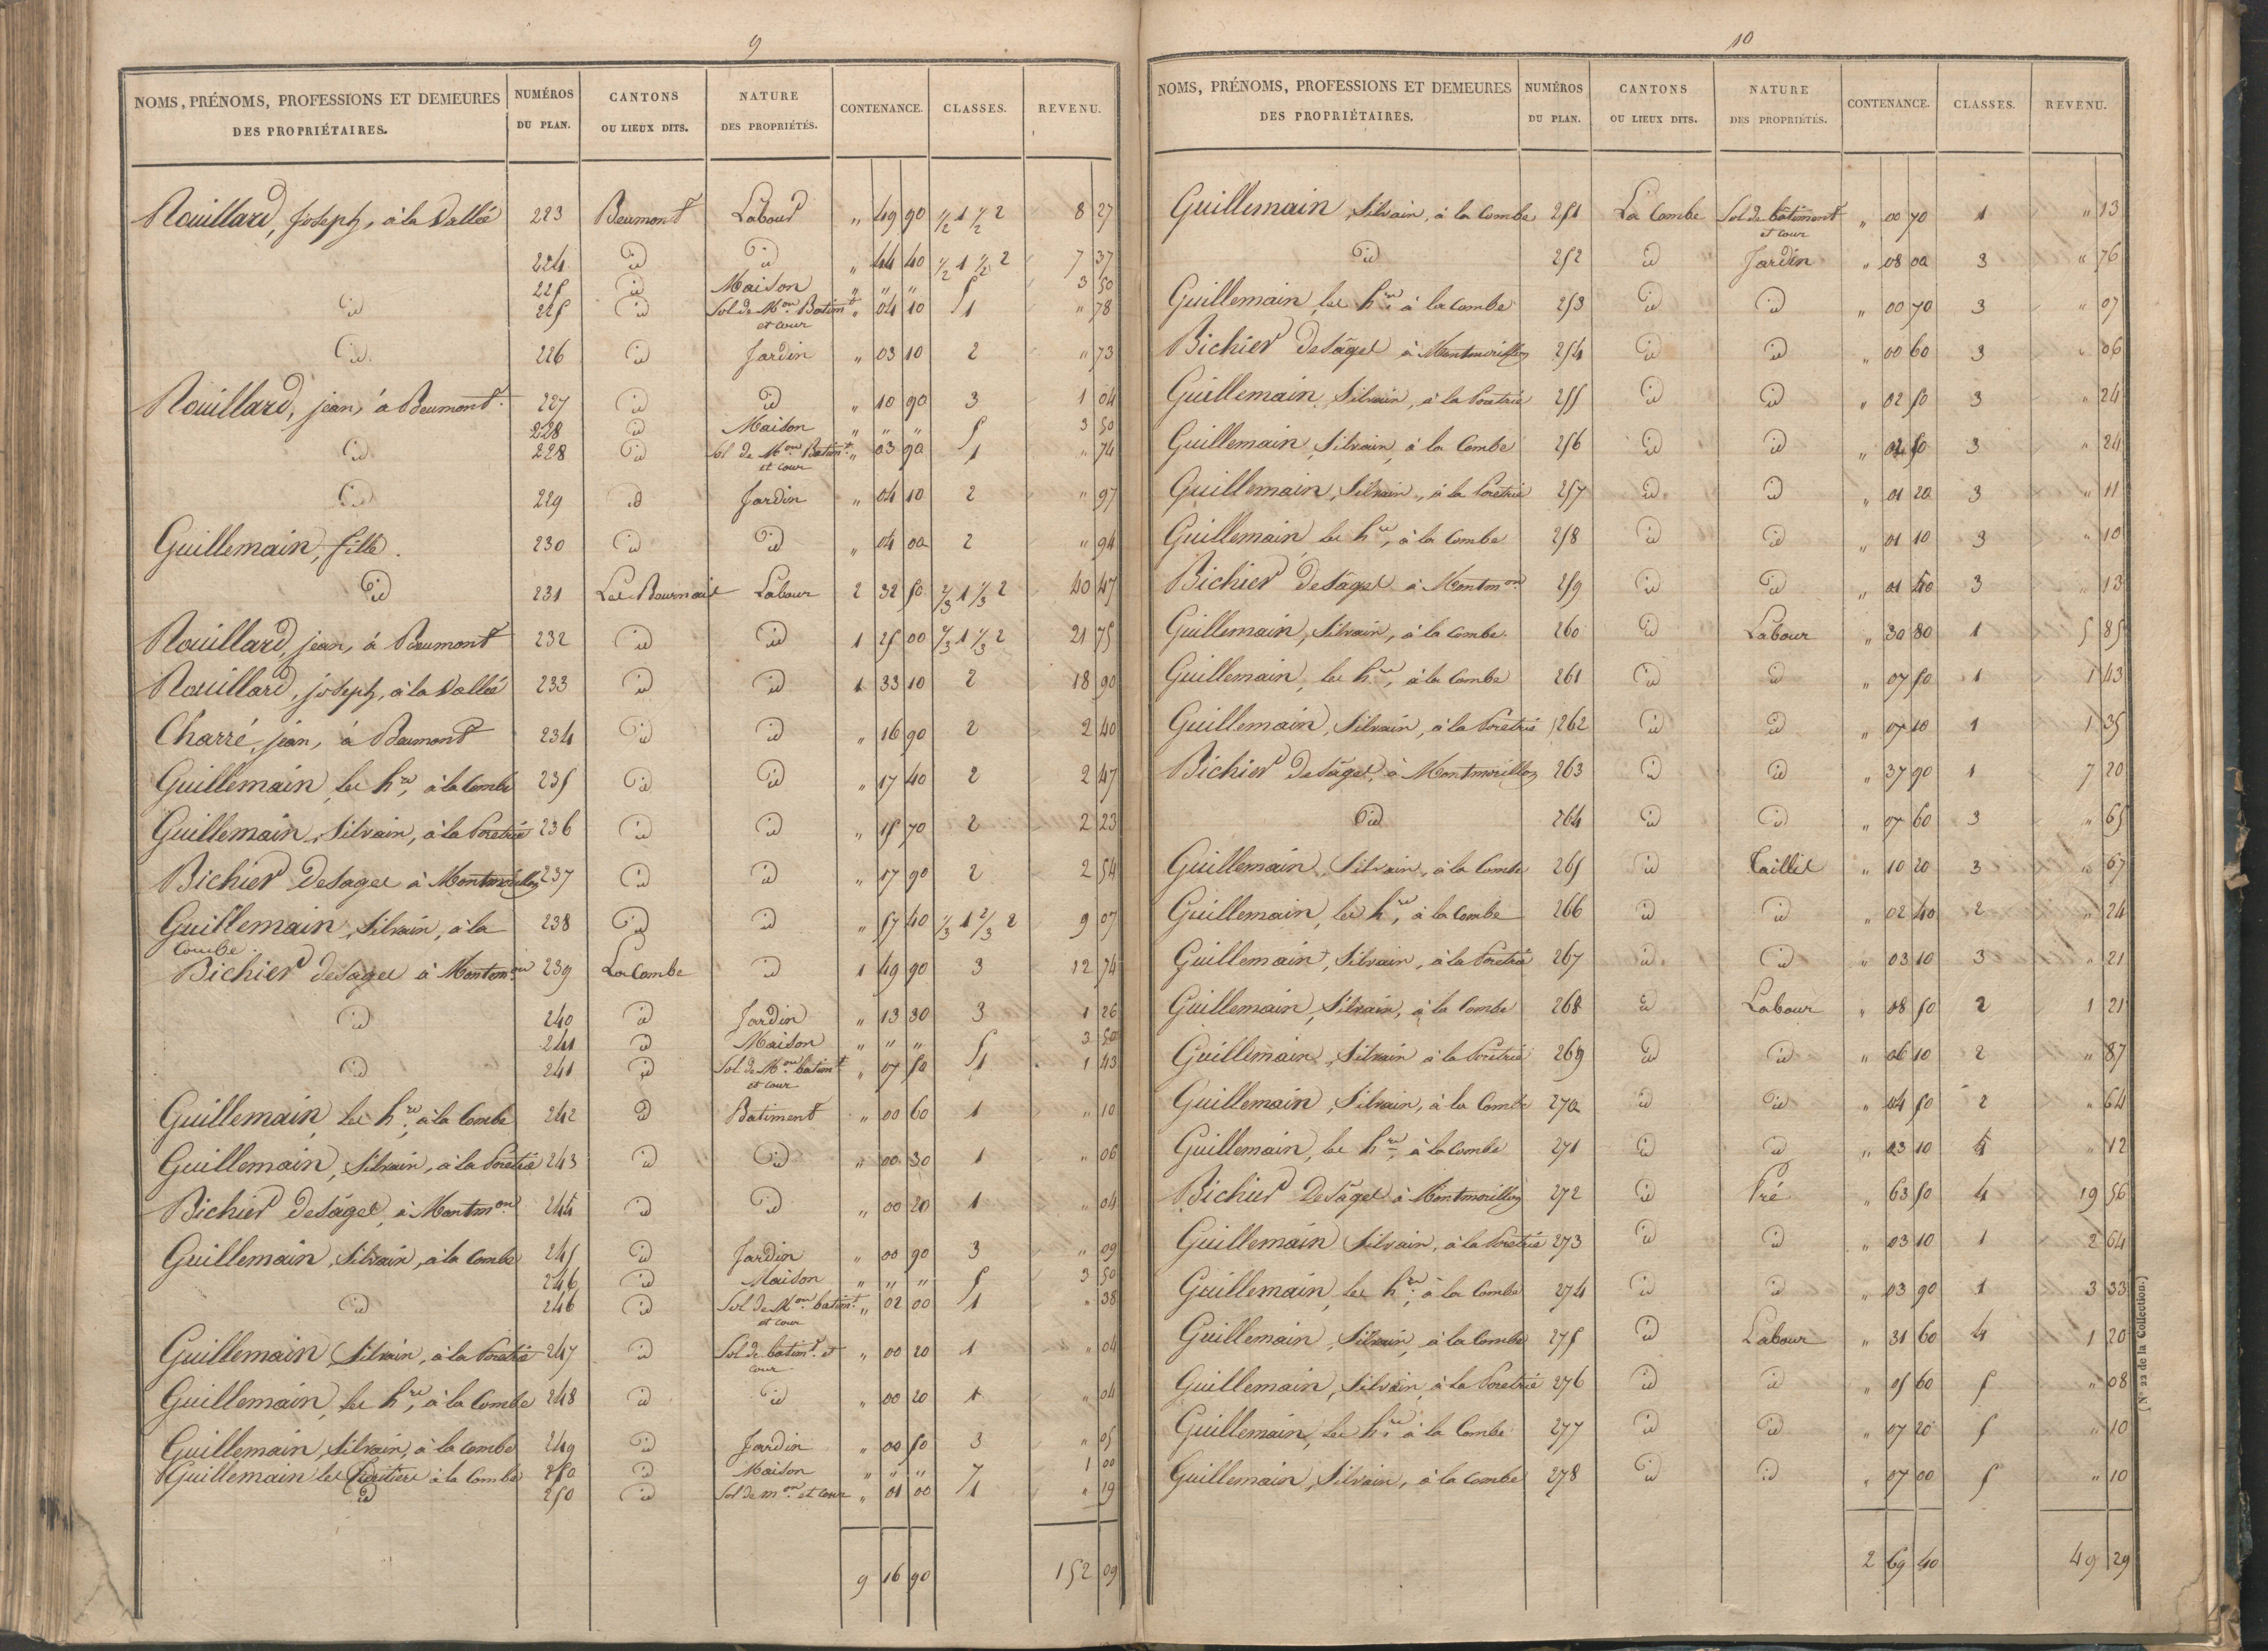 9
NOMS, PRÉNOMS, PROFESSIONS ET DEMEURES DES PROPRIÉTAIRES. NUMÉROS DU PLAN. CANTONS OU LIEUX DITS. NATURE DES PROPRIÉTÉS. CONTENANCE. CLASSES. REVENU.
Rouillard, Joseph, à la Vallée 223 Beumont Labour " 49 90 1/2 1 1/2 2 8 27
224 id id " 44 40 1/2 1 1/2 2 7 37
225 id Maison " " " 5 3 50
id 225 id Sol de Mon Batimt et cour " 04 10 1 " 78
id 226 id Jardin " 03 10 2 " 73
Rouillard, jean, à Beumont 227 id id " 10 90 3 1 04
228 id Maison " " " 5 3 50
id 228 id Sol de Mon Batimt et cour " 03 90 1 " 74
id 229 id Jardin " 04 10 2 " 97
Guillemain, fille. 230 id id " 04 00 2 " 94
id 231 Les Bournais Labour 2 32 50 2/3 1 1/3 2 40 47
Rouillard, jean, à Beumont 232 id id 1 25 00 2/3 1 1/3 2 21 75
Rouillard, joseph, à la Vallée 233 id id 1 33 10 2 18 90
Charré, jean, à Beumont 234 id id " 16 90 2 2 40
Guillemain, les hrs, à la Combe 235 id id " 17 40 2 2 47
Guillemain, Silvain, à la Poretrie 236 id id " 15 70 2 2 23
Bichier Desages à Montmorillon 237 id id " 17 90 2 2 54
Guillemain, Silvain, à la Combe. 238 id id " 57 40 1/3 1 2/3 2 9 07
Bichier desages à Montmon 239 La Combe id 1 49 90 3 12 74
id 240 id Jardin " 13 30 3 1 26
241 id Maison " " " 5 3 50
id 241 id Sol de Mon batimt et cour " 07 50 1 1 43
Guillemain, les hrs, à la Combe 242 id Batiment " 00 60 1 " 10
Guillemain, Silvain, à la Poretrie 243 id id " 00 30 1 " 06
Bichier Desages, à Montmon 244 id id " 00 20 1 " 04
Guillemain, Silvain, à la Combe 245 id Jardin " 00 90 3 " 09
246 id Maison " " " 5 3 50
id 246 id Sol de Mon batimt et cour " 02 00 1 " 38
Guillemain, Silvain, à la Poretrie 247 id Sol de batimt et cour " 00 20 1 " 04
Guillemain, les hrs, à la Combe 248 id id " 00 20 1 " 04
Guillemain, Silvain, à la Combe 249 id Jardin " 00 50 3 " 05
Guillemain les héritiers à la Combe 250 id Maison " " " 7 1 00
id 250 id Sol de mon et cour " 01 00 1 " 19
9 16 90 152 09
10
NOMS, PRÉNOMS, PROFESSIONS ET DEMEURES DES PROPRIÉTAIRES. NUMÉROS DU PLAN. CANTONS OU LIEUX DITS. NATURE DES PROPRIÉTÉS. CONTENANCE. CLASSES. REVENU.
Guillemain, Silvain, à la Combe 251 La Combe Sol de batiment et cour " 00 70 1 " 13
id 252 id Jardin " 08 00 3 " 76
Guillemain, les hrs à la Combe 253 id id " 00 70 3 " 07
Bichier Desages à Montmorillon 254 id id " 00 60 3 " 06
Guillemain, Silvain, à la Poretrie 255 id id " 02 50 3 " 24
Guillemain, Silvain, à la Combe 256 id id " 02 50 3 " 24
Guillemain, Silvain, à la Poretrie 257 id id " 01 20 3 " 11
Guillemain, les hrs, à la Combe 258 id id " 01 10 3 " 10
Bichier Desages à Montmon 259 id id " 01 40 3 " 13
Guillemain, Silvain, à la Combe. 260 id Labour " 30 80 1 5 85
Guillemain, les hrs, à la Combe 261 id id " 07 50 1 1 43
Guillemain, Silvain, à la Poretrie 262 id id " 07 10 1 1 35
Bichier Desages, à Montmorillon 263 id id " 37 90 1 7 20
id 264 id id " 07 60 3 " 65
Guillemain, Silvain, à la Combe 265 id Taillis " 10 20 3 " 67
Guillemain, les hrs, à la Combe 266 id id " 02 40 2 " 24
Guillemain, Silvain, à la Poretrie 267 id id " 03 10 3 " 21
Guillemain, Silvain, à la Combe 268 id Labour " 08 50 2 1 21
Guillemain, Silvain à la Poretrie 269 id id " 06 10 2 " 87
Guillemain, Silvain, à la Combe 270 id id " 04 50 2 " 64
Guillemain, les hrs, à la Combe 271 id id " 03 10 4 " 12
Bichier Desages à Montmorillon 272 id Pré " 63 50 4 19 56
Guillemain Silvain, à la Poretrie 273 id id " 03 10 1 2 64
Guillemain, les hrs, à la Combe 274 id id " 03 90 1 3 33
Guillemain, Silvain, à la Combe 275 id Labour " 31 60 4 1 20
Guillemain, Silvain, à la Poretrie 276 id id " 05 60 5 " 08
Guillemain, les hrs à la Combe 277 id id " 07 20 5 " 10
Guillemain, Silvain, à la Combe 278 id id " 07 00 5 " 10
2 69 40 49 29
(N° 22 de la Collection.)